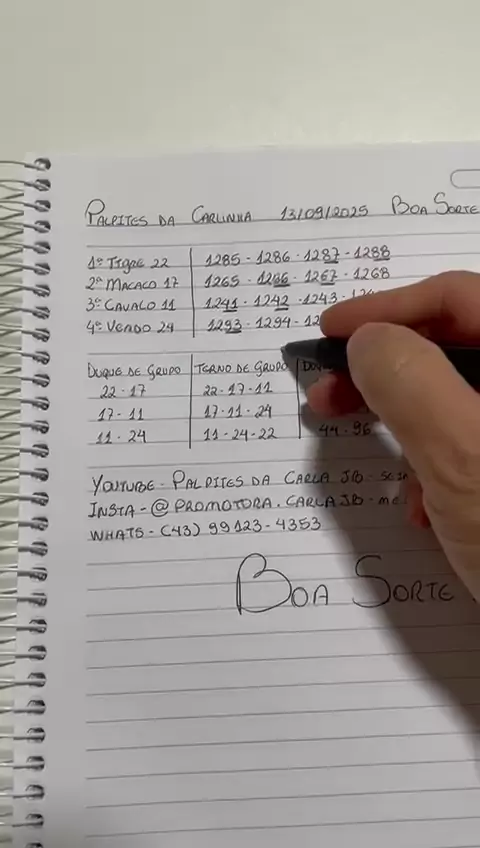 PALPITES DA CARLINHA 13/09/2025 BOA SORTE
1º TIGRE 22 1285 - 1286 - 1287 - 1288
2º MACACO 17 1265 - 1266 - 1267 - 1268
3º CAVALO 11 1241 - 1242 - 1243 -
4º VEADO 24 1293 - 1294 -
DUQUE DE GRUPO TERNO DE GRUPO
22 - 17 22 - 17 - 11
17 - 11 17 - 11 - 24
11 - 24 11 - 24 - 22 44 - 96
YOUTUBE - PALPITES DA CARLA JB -
INSTA - @PROMOTORA.CARLAJB - ME
WHATS - (43) 99123-4353
BOA SORTE